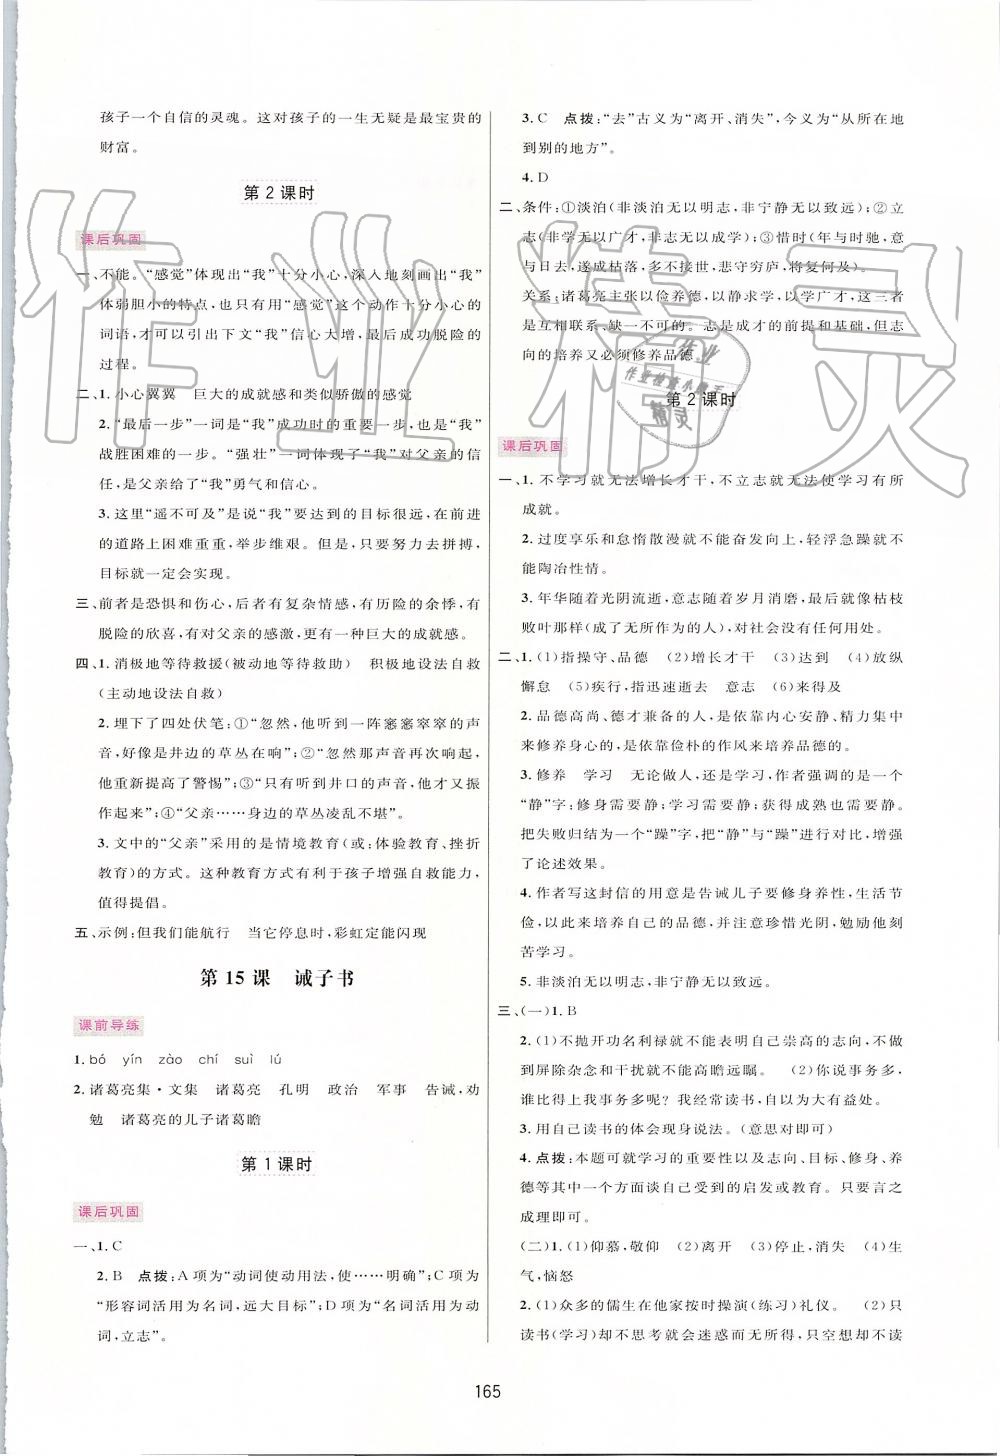 孩子一个自信的灵魂。这对孩子的一生无疑是最宝贵的
财富。
第2课时
课后巩固
一、不能。“感觉”体现出“我”十分小心,深入地刻画出“我”
体弱胆小的特点,也只有用“感觉”这个动作十分小心的
词语,才可以引出下文“我”信心大增,最后成功脱险的
过程。
二、1.小心翼翼　巨大的成就感和类似骄傲的感觉
2.“最后一步”一词是“我”成功时的重要一步,也是“我”
战胜困难的一步。“强壮”一词体现了“我”对父亲的信
任,是父亲给了“我”勇气和信心。
3.这里“遥不可及”是说“我”要达到的目标很远,在前进
的道路上困难重重,举步维艰。但是,只要努力去拼搏,
目标就一定会实现。
三、前者是恐惧和伤心,后者有复杂情感,有历险的余悸,有
脱险的欣喜,有对父亲的感激,更有一种巨大的成就感。
四、1.消极地等待救援(被动地等待救助)　积极地设法自救
(主动地设法自救)
2.埋下了四处伏笔:①“忽然,他听到一阵窸窸窣窣的声
音,好像是井边的草丛在响”;②“忽然那声音再次响起,
他重新提高了警惕”;③“只有听到井口的声音,他才又振
作起来”;④“父亲……身边的草丛凌乱不堪”。
3.文中的“父亲”采用的是情境教育(或:体验教育、挫折
教育)的方式。这种教育方式有利于孩子增强自救能力,
值得提倡。
五、示例:但我们能航行　当它停息时,彩虹定能闪现
第15课　诫子书
课前导练
1.bó　yín　zào　chí　suì　lú
2.诸葛亮集·文集　诸葛亮　孔明　政治　军事　告诫,劝
勉　诸葛亮的儿子诸葛瞻
第1课时
课后巩固
一、1.C
2.B　点拨:A项为“动词使动用法,使……明确”;C项为
“形容词活用为名词,远大目标”;D项为“名词活用为动
词,立志”。
3.C　点拨:“去”古义为“离开、消失”,今义为“从所在地
到别的地方”。
4.D
二、条件:①淡泊(非淡泊无以明志,非宁静无以致远);②立
志(非学无以广才,非志无以成学);③惜时(年与时驰,意
与日去,遂成枯落,多不接世,悲守穷庐,将复何及)。
关系:诸葛亮主张以俭养德,以静求学,以学广才,这三者
是互相联系、缺一不可的。志是成才的前提和基础,但志
向的培养又必须修养品德。
第2课时
课后巩固
一、1.不学习就无法增长才干,不立志就无法使学习有所
成就。
2.过度享乐和怠惰散漫就不能奋发向上,轻浮急躁就不
能陶冶性情。
3.年华随着光阴流逝,意志随着岁月消磨,最后就像枯枝
败叶那样(成了无所作为的人),对社会没有任何用处。
二、1.(1)指操守、品德　(2)增长才干　(3)达到　(4)放纵
懈怠　(5)疾行,指迅速逝去　意志　(6)来得及
2.品德高尚、德才兼备的人,是依靠内心安静、精力集中
来修养身心的,是依靠俭朴的作风来培养品德的。
3.修养　学习　无论做人,还是学习,作者强调的都是一
个“静”字:修身需要静;学习需要静;获得成熟也需要静。
把失败归结为一个“躁”字,把“静”与“躁”进行对比,增强
了论述效果。
4.作者写这封信的用意是告诫儿子要修身养性,生活节
俭,以此来培养自己的品德,并注意珍惜光阴,勉励他刻
苦学习。
5.非淡泊无以明志,非宁静无以致远。
三、(一)1.B
2.(1)不抛开功名利禄就不能表明自己崇高的志向,做不
到屏除杂念和干扰就不能高瞻远瞩。　(2)你说事务多,
谁比得上我事务多呢?我经常读书,自以为大有益处。
3.用自己读书的体会现身说法。(意思对即可)
4.点拨:本题可就学习的重要性以及志向、目标、修身、养
德等其中一个方面谈自己受到的启发或教育。只要言之
成理即可。
(二)1.(1)仰慕,敬仰　(2)离开　(3)停止,消失　(4)生
气,恼怒
2.(1)众多的儒生在他家按时操演(练习)礼仪。　(2)只
读书(学习)却不思考就会迷惑而无所得,只空想却不读
165
作业精灵
作业检查小助手